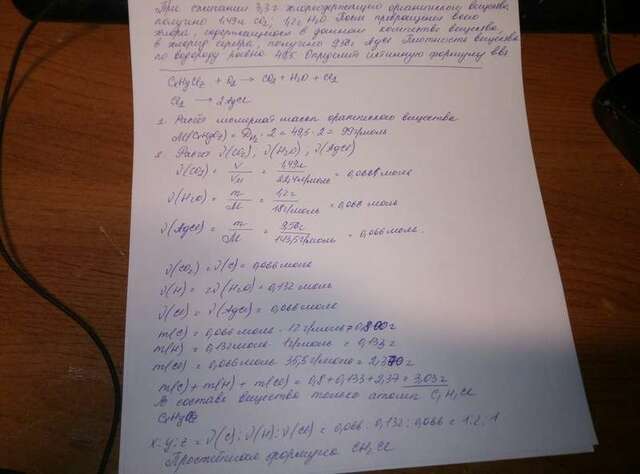 При сжигании 3,3 г хлорсодержащего органического вещества
получено 1,49л CO₂, 1,2г H₂O. После превращения всего
хлора, содержащегося в данном количестве вещества,
в хлорид серебра, получено 9,50г AgCl. Плотность вещества
по водороду равна 49,5. Определите истинную формулу
CxHyClz + O₂ → CO₂ + H₂O + Cl₂
Cl₂ → 2AgCl
1. Расчёт молярной массы органического вещества
M(CxHyClz) = DH₂ · 2 = 49,5 · 2 = 99г/моль
2. Расчёт ν(CO₂), ν(H₂O), ν(AgCl)
ν(CO₂) = V/Vм = 1,49л/22,4л/моль = 0,066 моль
ν(H₂O) = m/M = 1,2г/18г/моль = 0,066 моль
ν(AgCl) = m/M = 9,50г/143,5г/моль = 0,066 моль.
ν(CO₂) = ν(C) = 0,066 моль
ν(H) = 2ν(H₂O) = 0,132 моль
ν(Cl) = ν(AgCl) = 0,066 моль
m(C) = 0,066 моль · 12г/моль = 0,800г
m(H) = 0,132моль 1г/моль = 0,133г
m(Cl) = 0,066моль 35,5г/моль = 2,370г
m(C) + m(H) + m(Cl) = 0,8 + 0,133 + 2,37 = 3,03г
В составе вещества только атомы C, H, Cl
CxHyClz
x:y:z = ν(C) : ν(H) : ν(Cl) = 0,066 : 0,132 : 0,066 = 1:2:1
Простейшая формула CH₂Cl